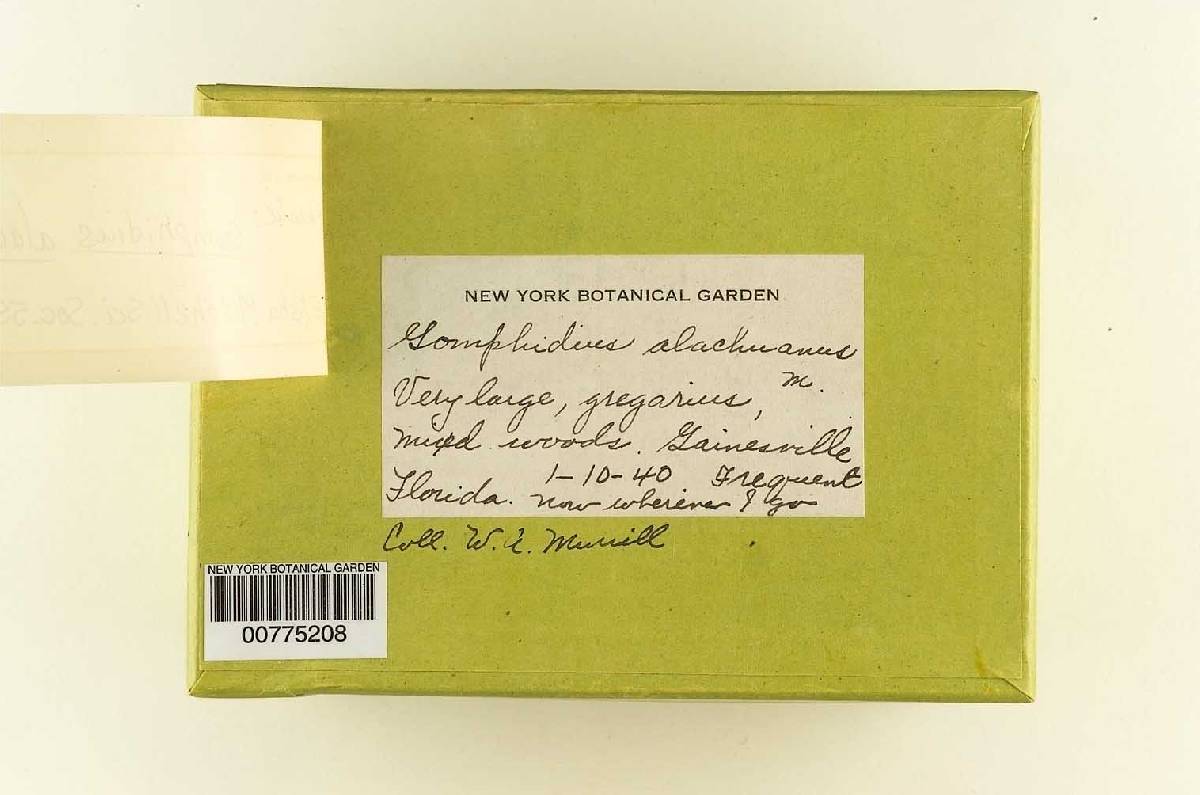 NEW YORK BOTANICAL GARDEN
Gomphidius alachuanus
M.
Very large, gregarius,
mixed woods. Gainesville
Florida. 1-10-40 Frequent
now wherever I go
Coll. W. A. Murrill
NEW YORK BOTANICAL GARDEN
00775208